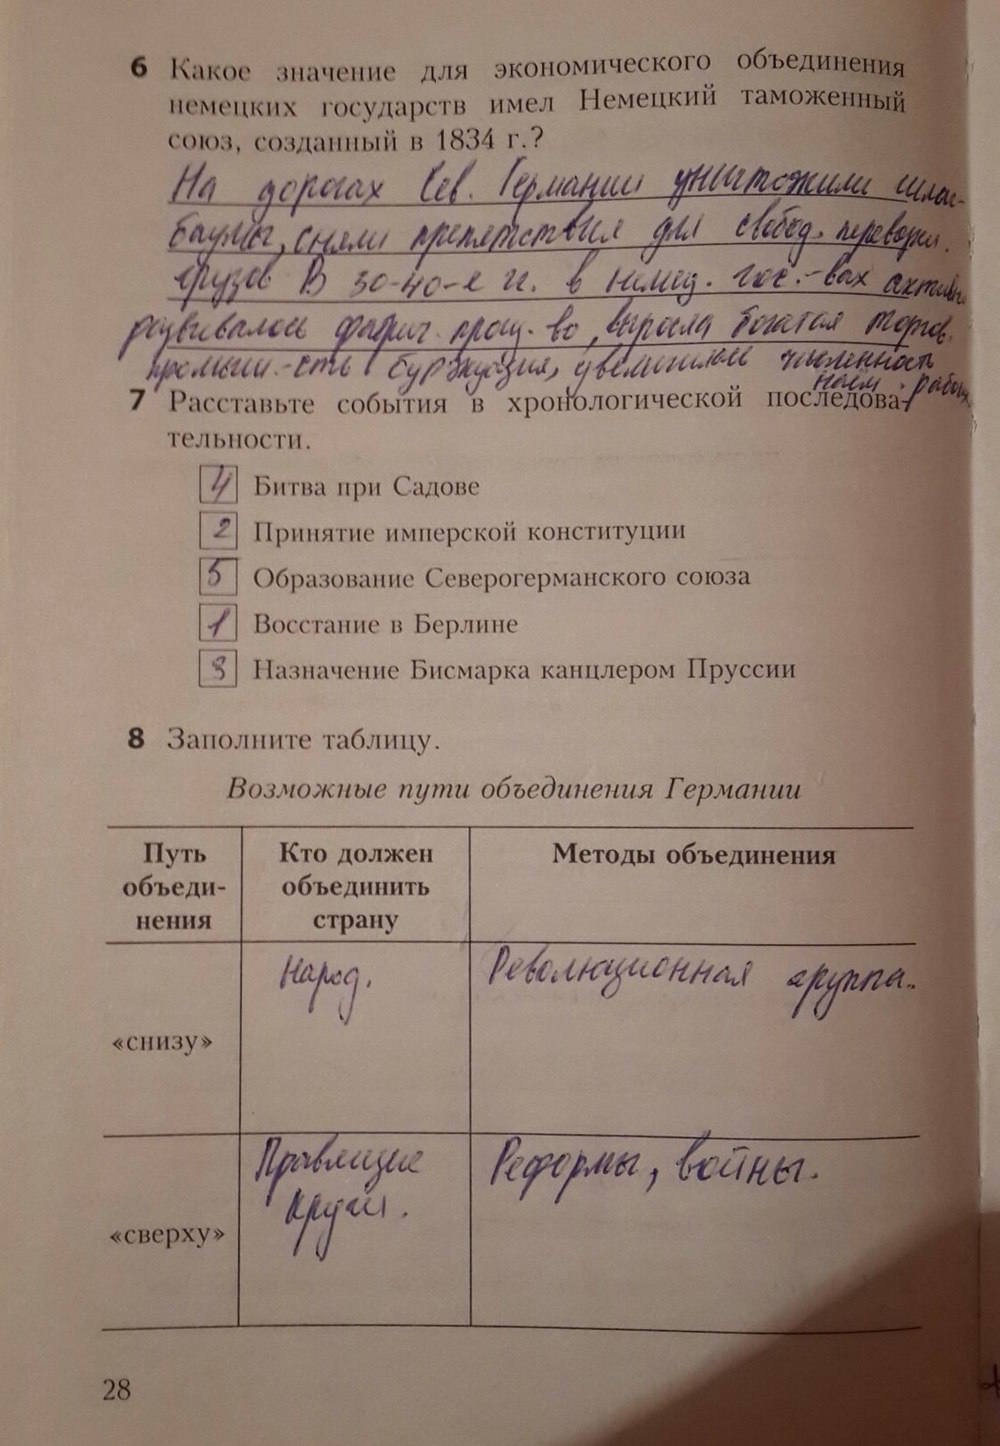 6 Какое значение для экономического объединения
немецких государств имел Немецкий таможенный
союз, созданный в 1834 г.?
На дорогах Сев. Германии уничтожили шлаг-
баумы, сняли препятствия для свобод. перевозки
грузов В 30-40-е гг. в немец. гос.-вах активно
развивалось фабрич. произ-во, выросла богатая торгов.
промышл.-сть буржуазия, увеличилась численность
наём. рабочих
7 Расставьте события в хронологической последова-
тельности.
4 Битва при Садове
2 Принятие имперской конституции
5 Образование Северогерманского союза
1 Восстание в Берлине
3 Назначение Бисмарка канцлером Пруссии
8 Заполните таблицу.
Возможные пути объединения Германии
Путь объеди-
нения
Кто должен
объединить
страну
Методы объединения
«снизу»
Народ.
Революционная группа.
«сверху»
Правящие
круги.
Реформы, войны.
28